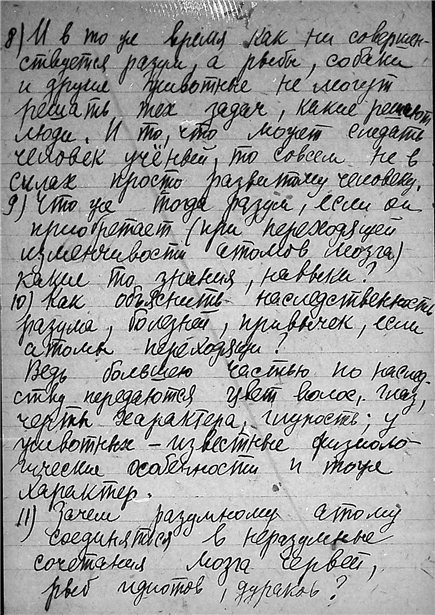 8) И в то же время как ни совершен-
ствуется разум, а рыбы, собаки
и другие животные не могут
решать тех задач, какие решают
люди. И то, что может сделать
человек учёный, то совсем не в
силах просто развитому человеку.
9) Что же тогда разум, если он
приобретает (при переходящей
изменчивости атомов мозга)
какие то знания, навыки?
10) Как объяснить наследственность
разума, болезней, привычек, если
атомы переходящи?
Ведь большею частью по наслед-
ству передаются цвет волос, глаз,
черты характера, глупость; у
животных – известные физиоло-
гические особенности и тоже
характер.
11) Зачем разумному атому
соединяться в неразумные
сочетания мозга червей,
рыб идиотов, дураков?